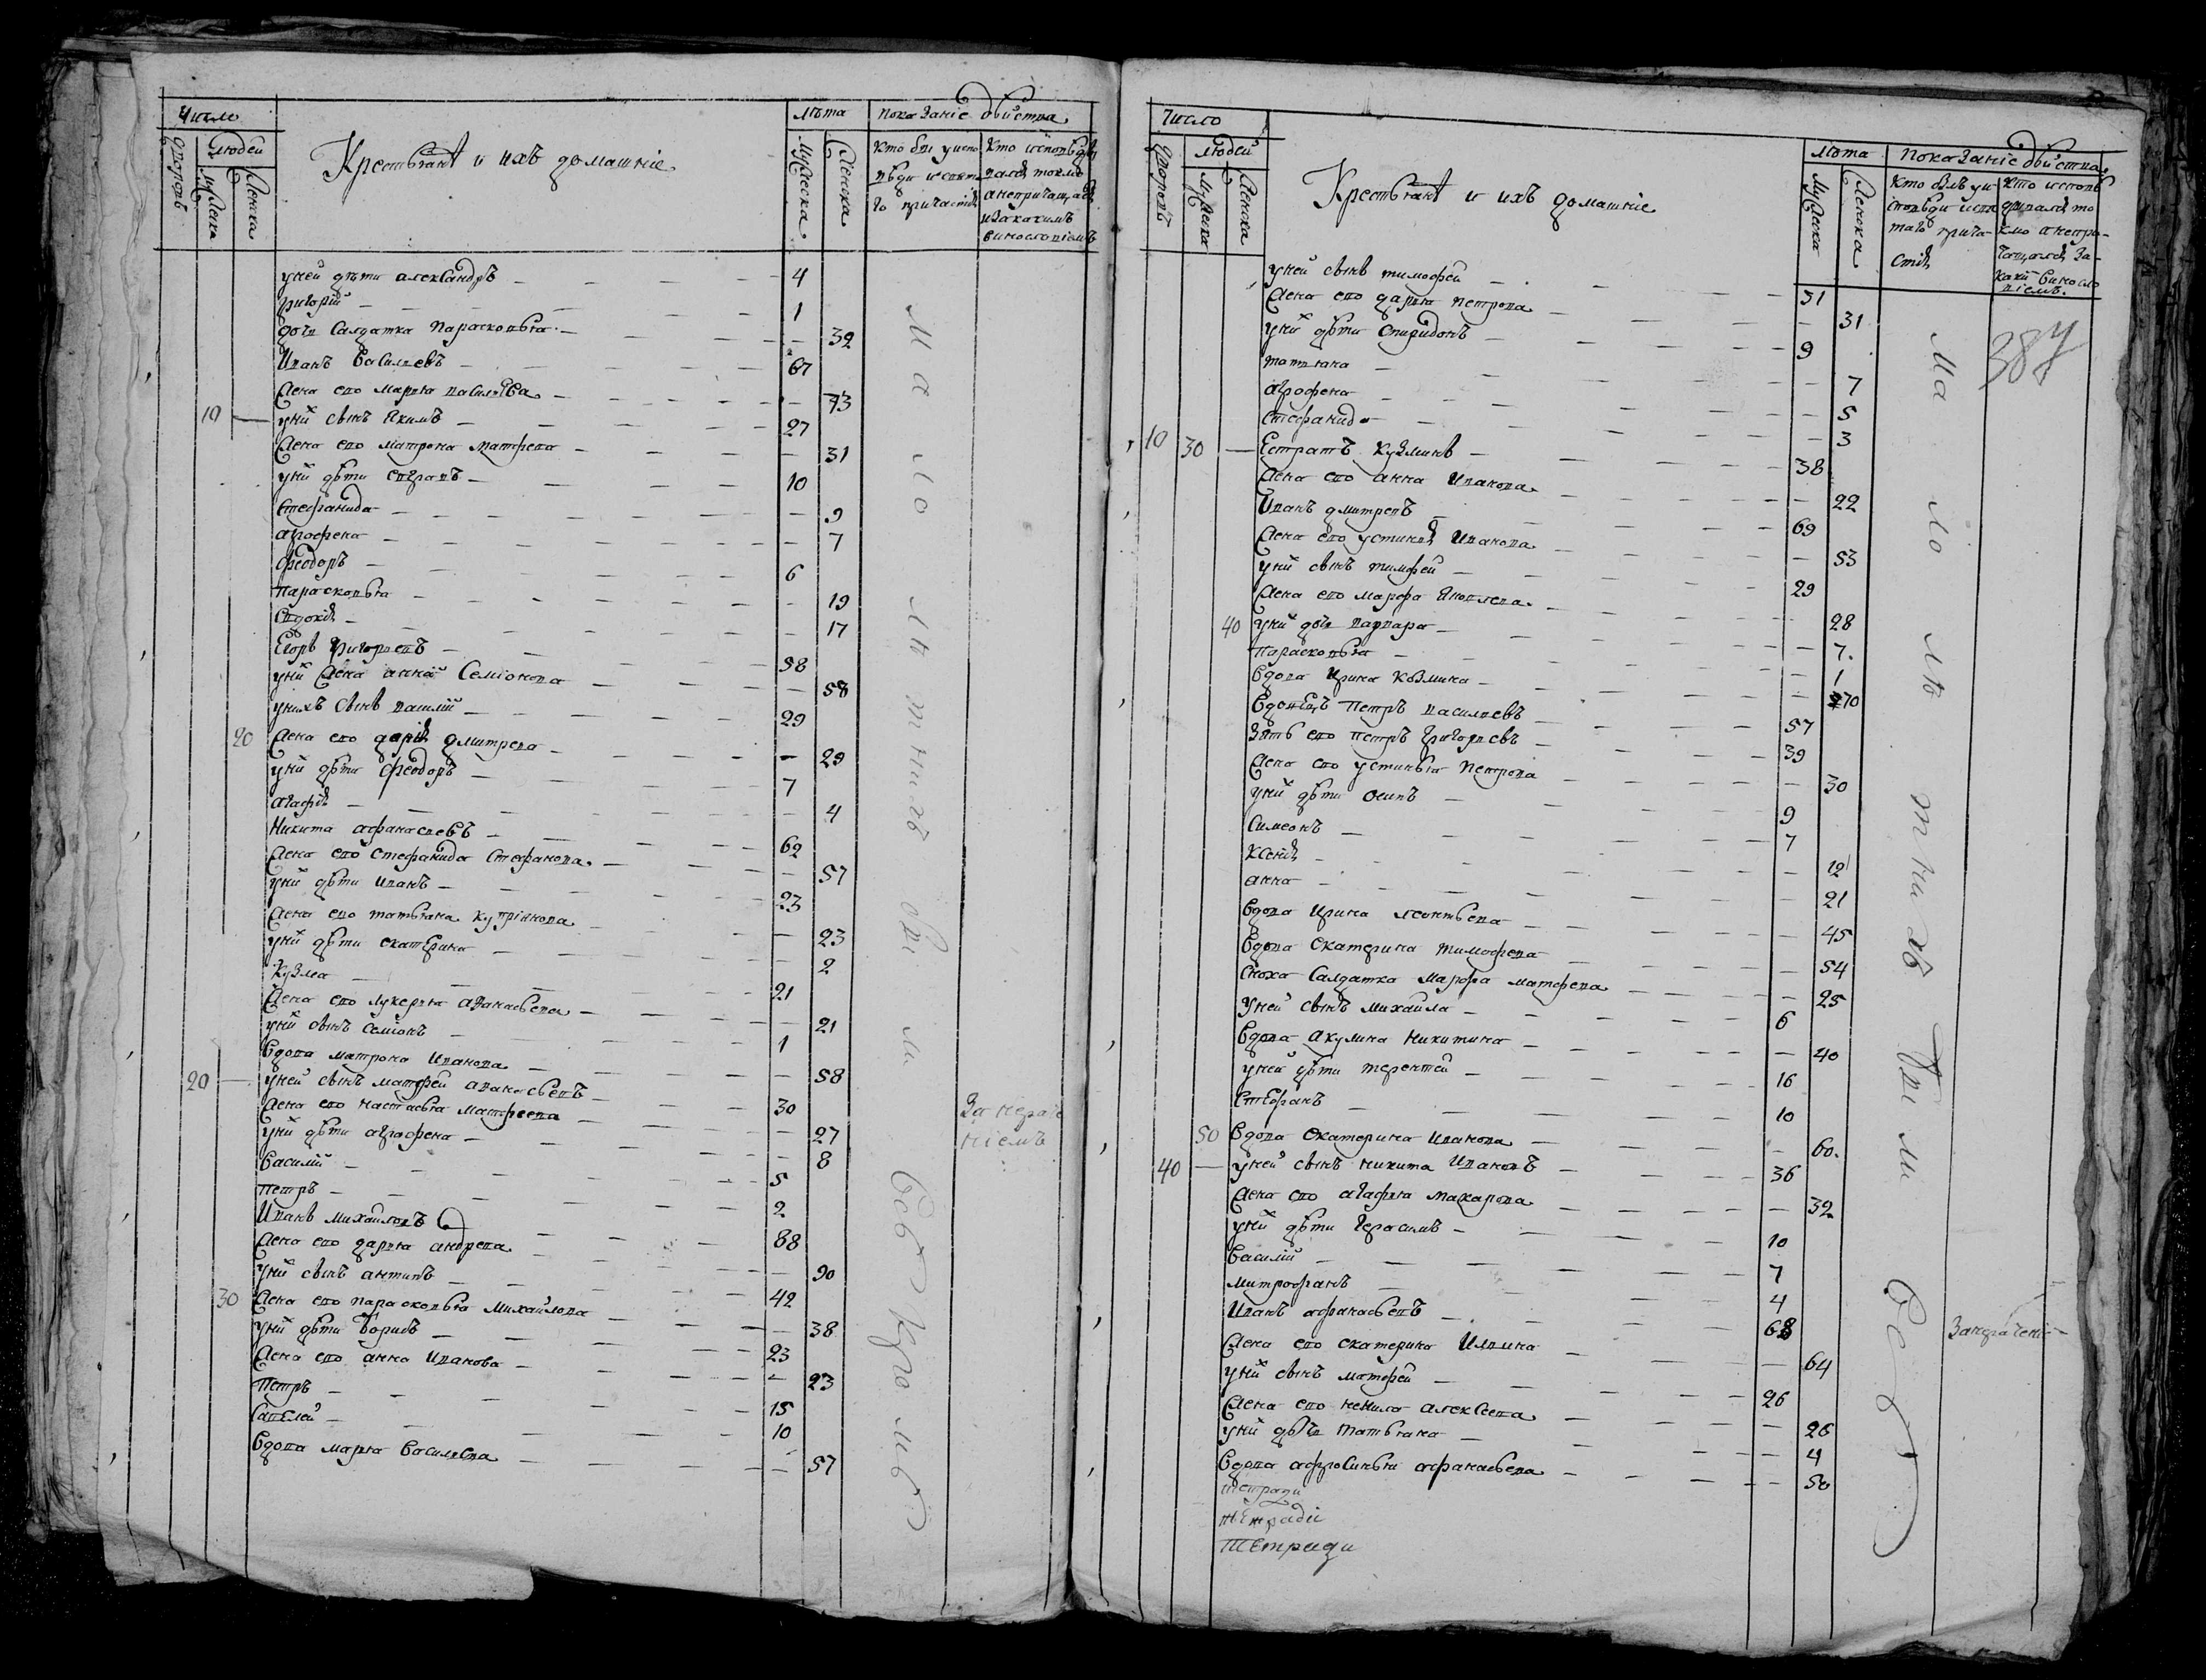 Число
людей
дворовъ
мужеска
женска
Крестьянѣ и ихъ домашніе
лѣта
мужеска
женска
показаніе дѣйства
кто былъ у испо
вѣди и святаго причастія
кто исповѣдывался токмо
а непричащался
и за какимъ
винословіемъ
у ней дѣти александръ 4
григорій 1
дочь Салдатка Парасковья 32
Иванъ Васильевъ 67
Жена его Марья васильева 73
10 у них сынъ Якимъ 27
Жена его матрона матфева 31
у них дѣти 10
Стефанида 9
аграфена 7
Феодоръ 6
Парасковья 19
Евдокія 17
Егоръ григорьевъ 58
у них Жена анна Семіонова 58
у нихъ сынъ василій 29
20 Жена его дарія дмитрева 29
у них дѣти феодоръ 7
агафія 4
Никита афанасьевъ 62
Жена его стефанида Стефанова 57
у них дѣти иванъ 23
Жена его татьяна купріянова 23
у них дѣти екатерина 2
Кузма 21
Жена его лукерья афанасьева 21
у них сынъ Семіонъ 1
Вдова матрона Иванова 58
20 у ней сынъ матфей афанасьевъ 30
Жена его настасья матфеева 27
у них дѣти аграфена 8
Василій 5
Петръ 2
Иванъ Михайловъ 88
Жена его дарья андрева 90
у них сынъ антипъ 42
30 Жена его парасковья Михайлова 38
у них дѣти борисъ 23
Жена его анна Иванова 23
Петръ 15
Савелей 10
Вдова марья Василева 57
Малолѣтнихъ были всѣ кромѣ
За нераче
ніемъ
Число
людей
дворовъ
мужеска
женска
Крестьянѣ и ихъ домашніе
лѣта
мужеска
женска
Показаніе дѣйства
кто былъ у исповѣди и святаго причастія
кто исповѣдывался токмо а непричащался за какимъ винословіемъ.
387
у ней сынъ тимофей 31
Жена его дарья петрова 31
у них дѣти Спиридонъ 9
татиана 7
аграфена 5
Стефанида 3
10 30 Естратъ Кузминъ 38
Жена его анна Иванова 22
Иванъ дмитревъ 69
Жена его устинія Иванова 53
у них сынъ тимофей 29
Жена его марфа Яковлева 28
40 у них дочь варвара 7.
Парасковья 1
Вдова Ирина Козмина 70
Вдовецъ Петръ васильевъ 57
Зять его петръ григорьевъ 39
Жена его устинья Петрова 30
у них дѣти осипъ 9
Симеонъ 7
Ксенія 12
анна 21
Вдова Ирина леонтьева 45
Вдова Екатерина тимофева 54
Сноха Салдатка марфа матфева 25
у ней сынъ михайла 6
Вдова акулина никитина 40
у ней дѣти терентей 16
Стефанъ 10
50 Вдова Екатерина Иванова 60.
40 у ней сынъ никита Ивановъ 36
Жена его агафья макарова 32
у них дѣти герасимъ 10
Василій 7
митрофанъ 4
Иванъ афанасьевъ 68
Жена его екатерина Ильина 64
у них сынъ матфей 26
Жена его ненила алексеева 26
у них дочь татьяна 4
Вдова афросинья афанасьева 50
Малолѣтнихъ были всѣ
Занерачені
тетради
тетради
Тетради